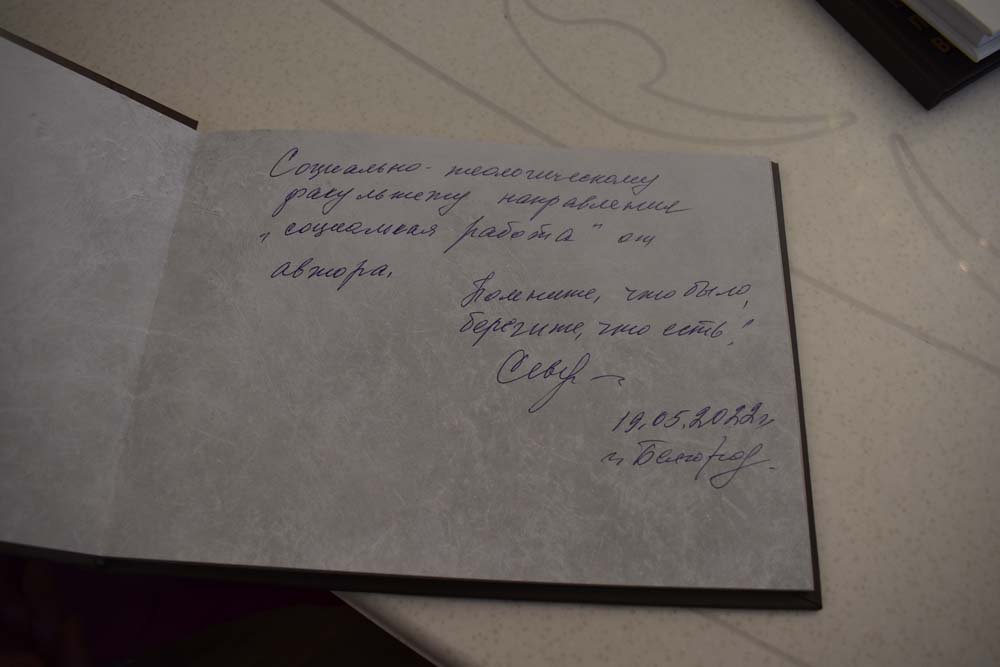 Социально-теологическому
факультету направления
„социальная работа" от
автора.
Помните, что было,
берегите, что есть!
19.05.2022г
г. Белгород.